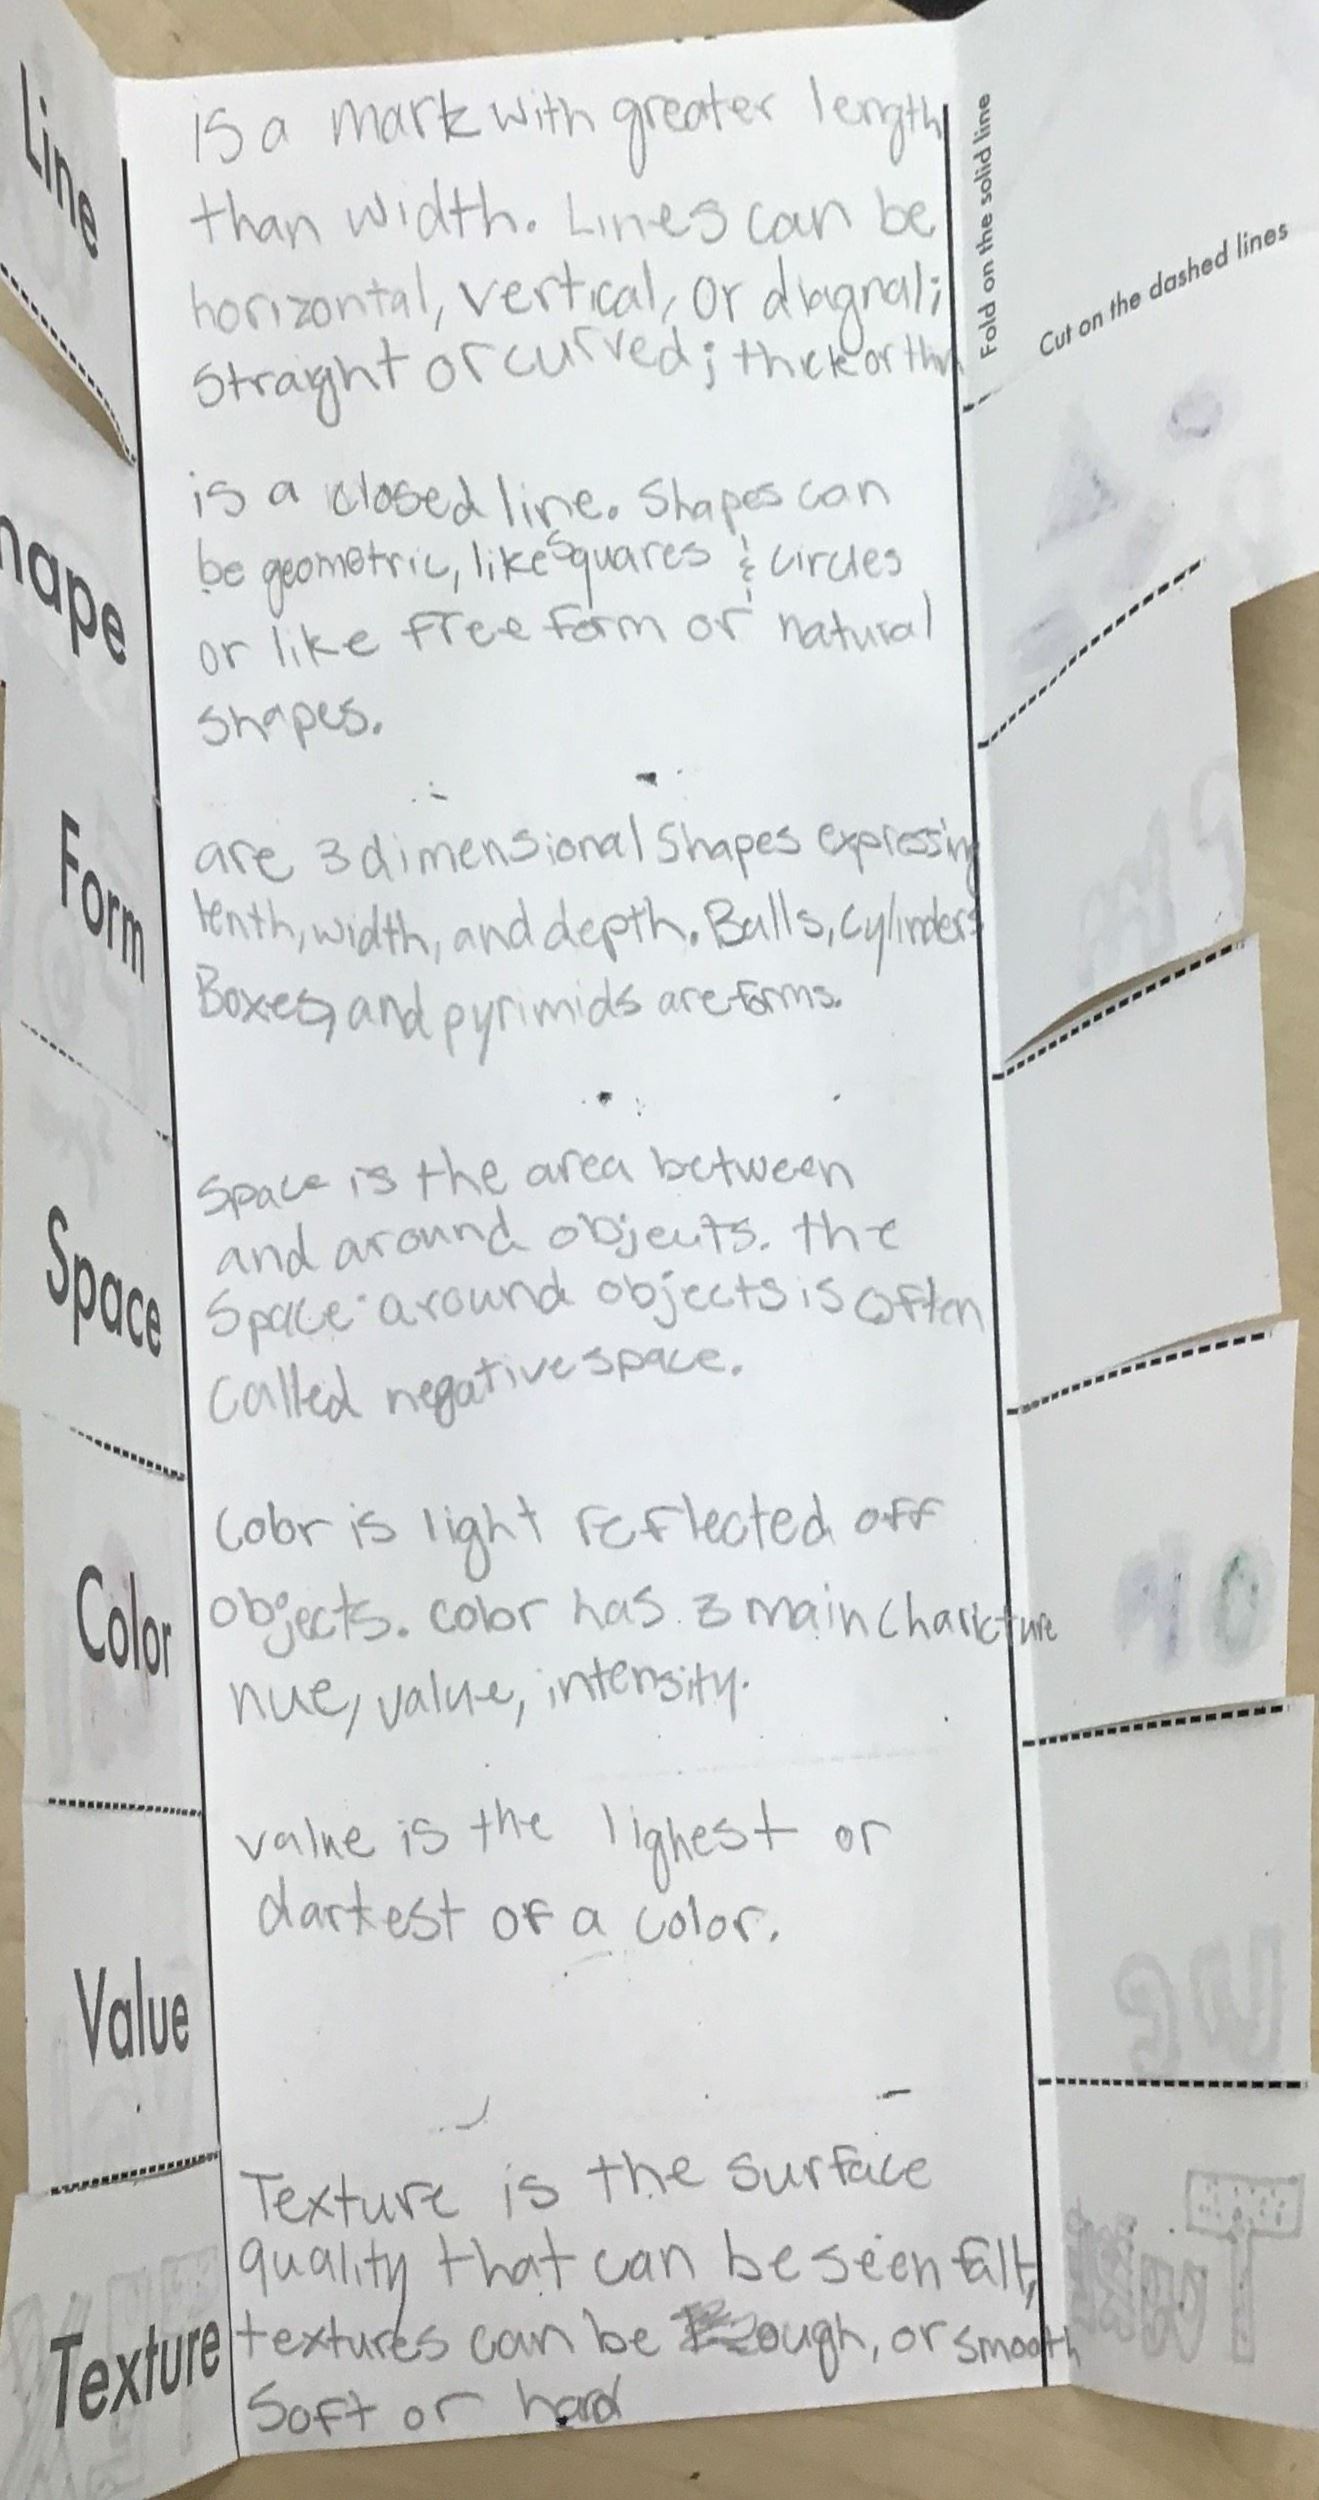 Line
is a mark with greater length
than width. Lines can be
horizontal, vertical, or diagnal;
Straight or curved; thick or thin
hape
is a closed line. Shapes can
be geometric, like squares & circles
or like free form or natural
shapes.
Form
are 3 dimensional Shapes expressing
lenth, width, and depth. Balls, cylinders
Boxes, and pyrimids are forms.
Space
Space is the area between
and around objects. the
Space around objects is often
called negative space.
Color
Color is light reflected off
objects. color has 3 main charicture
hue, value, intensity.
Value
value is the lighest or
darkest of a color.
Texture
Texture is the surface
quality that can be seen falt,
textures can be rough, or smooth
Soft or hard
Fold on the solid line
Cut on the dashed lines